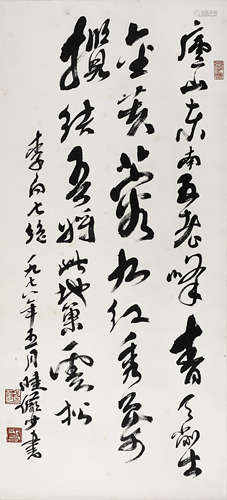 廬山东南五老峰青天削出
金芙蓉九江秀色可
攬結吾將此地巢雲松
李白七絕一九七八年五月陸儼少書